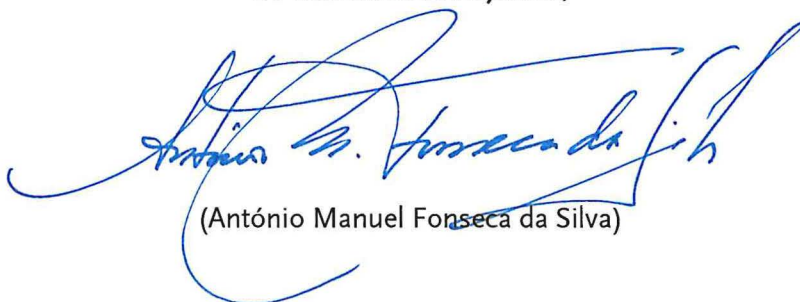 António M. Fonseca da Silva
(António Manuel Fonseca da Silva)